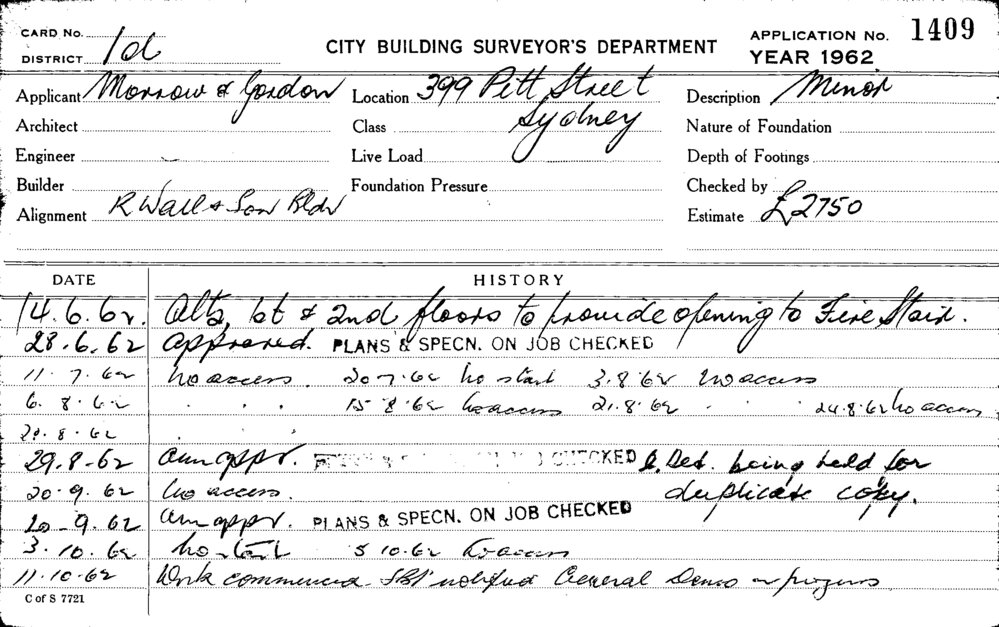 CARD No.
DISTRICT 1d
CITY BUILDING SURVEYOR'S DEPARTMENT
APPLICATION No. 1409
YEAR 1962
Applicant Morrow & Gordon
Location 399 Pitt Street
Sydney
Description Minor
Architect
Class
Nature of Foundation
Engineer
Live Load
Depth of Footings
Builder
Foundation Pressure
Checked by
Alignment R Wall & Son Bldr
Estimate £2750
DATE HISTORY
14.6.62. Alts, 1st & 2nd floors to provide opening to Fire Stair.
28.6.62 Approved. PLANS & SPECN. ON JOB CHECKED
11.7.62 No access. 20.7.62 No start 3.8.62 No access
6.8.62 " " 15.8.62 No access 21.8.62 " " 24.8.62 No access
.8.62 " "
29.8.62 Am appr. CHECKED Ded. being held for
duplicate copy.
20.9.62 No access.
20-9.62 Am appr. PLANS & SPECN. ON JOB CHECKED
3.10.62 No start 5 10.62 No access
11.10.62 Work commenced. notified General Demo in progress
C of S 7721